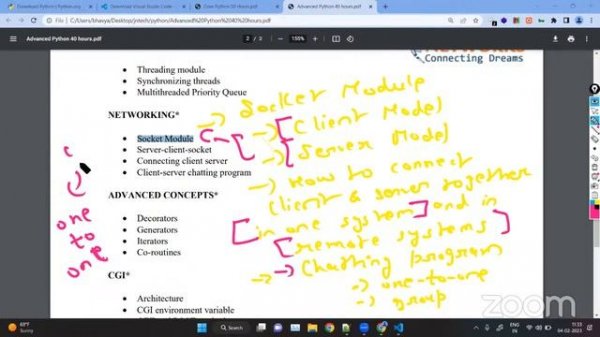 Download Python | Python.org
Download Visual Studio Code
Core Python 30 hours.pdf
Advanced Python 40 hours.pdf
Advanced Python 40 hours.pdf
2 / 2
150%
NETWORKS
Connecting Dreams
• Threading module
• Synchronizing threads
• Multithreaded Priority Queue
NETWORKING*
• Socket Module
• Server-client-socket
• Connecting client server
• Client-server chatting program
ADVANCED CONCEPTS*
• Decorators
• Generators
• Iterators
• Co-routines
CGI*
• Architecture
• CGI environment variable
-> Socket Module
C -> [Client Model
-> [Server Model
-> How to connect
client & server together
[in one system] and in
[remote systems]
-> Chatting program
-> one-to-one
-> group
one
to
one
zoom
Search
ENG
IN
11:33
04-02-2023
Sunny